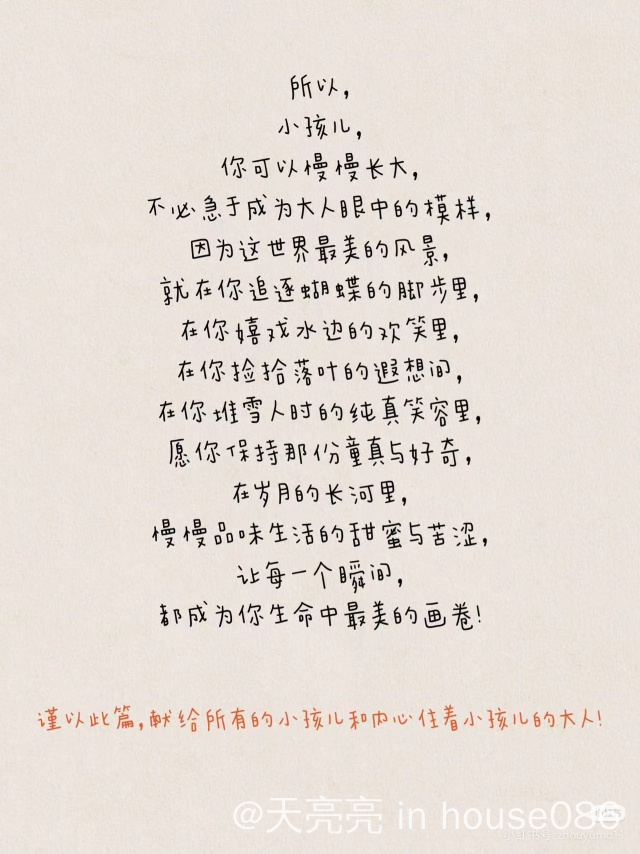 所以，
小孩儿，
你可以慢慢长大，
不必急于成为大人眼中的模样，
因为这世界最美的风景，
就在你追逐蝴蝶的脚步里，
在你嬉戏水边的欢笑里，
在你捡拾落叶的遐想间，
在你堆雪人时的纯真笑容里，
愿你保持那份童真与好奇，
在岁月的长河里，
慢慢品味生活的甜蜜与苦涩，
让每一个瞬间，
都成为你生命中最美的画卷！
谨以此篇，献给所有的小孩儿和内心住着小孩儿的大人！
@天亮亮 in house086